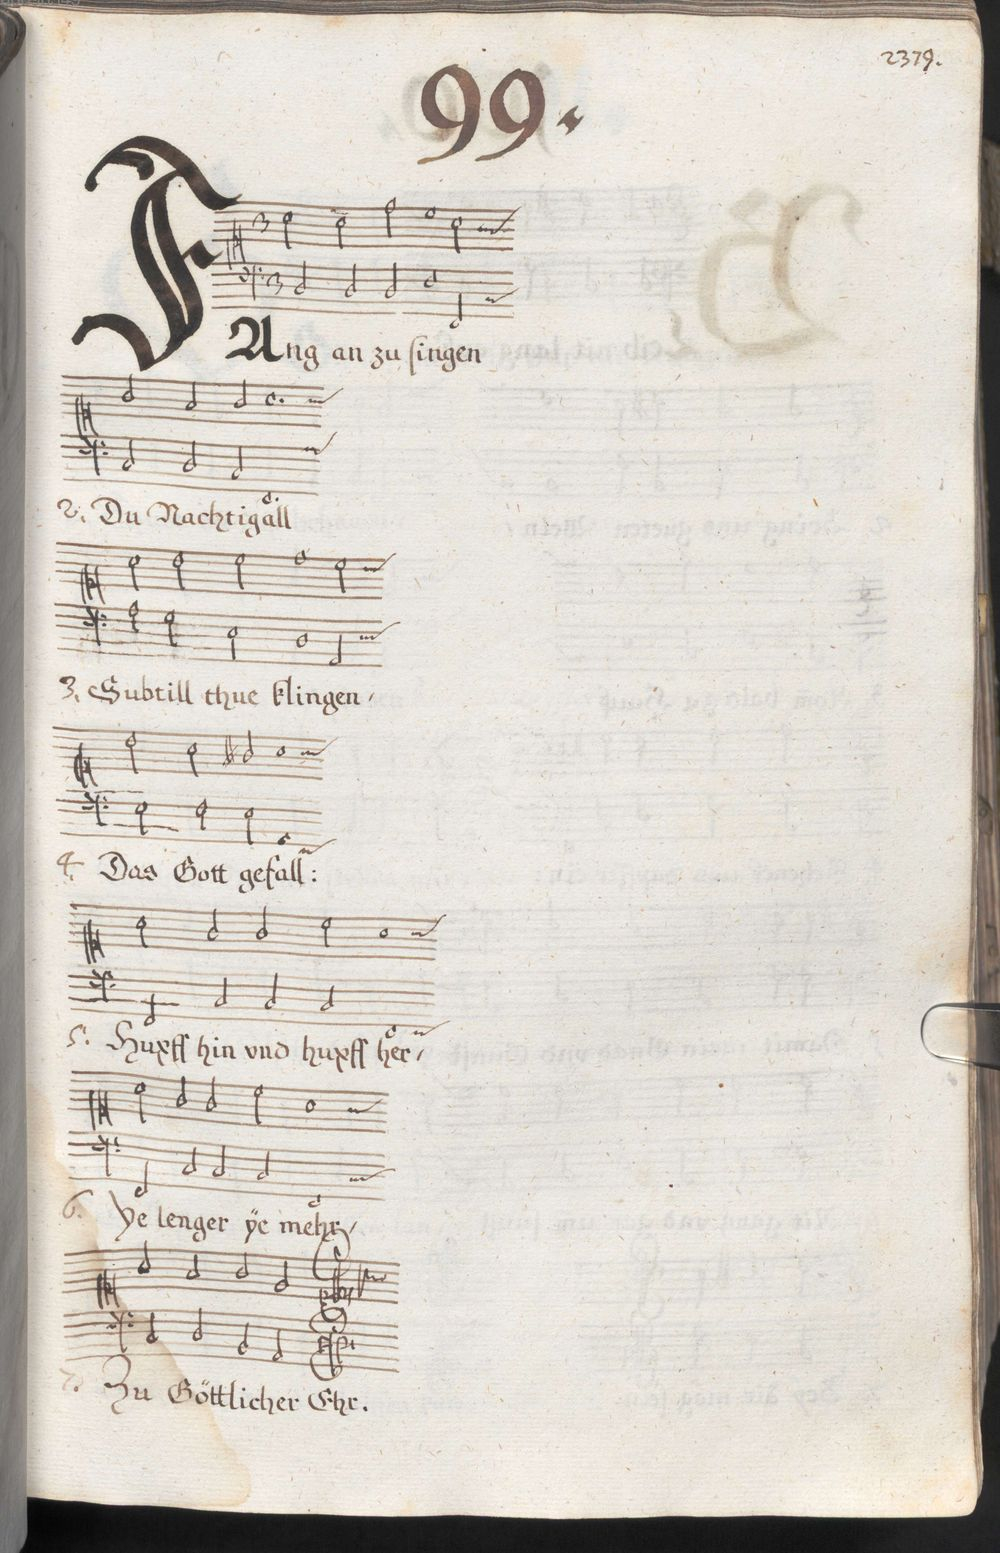 2379.
99.
FAng an zu singen
2. Du Nachtigall
3. Subtill thue klingen,
4. Das Gott gefall:
5. Hupff hin vnd hupff her,
6. Ye lenger ÿe mehr,
7. Zu Göttlicher Ehr.